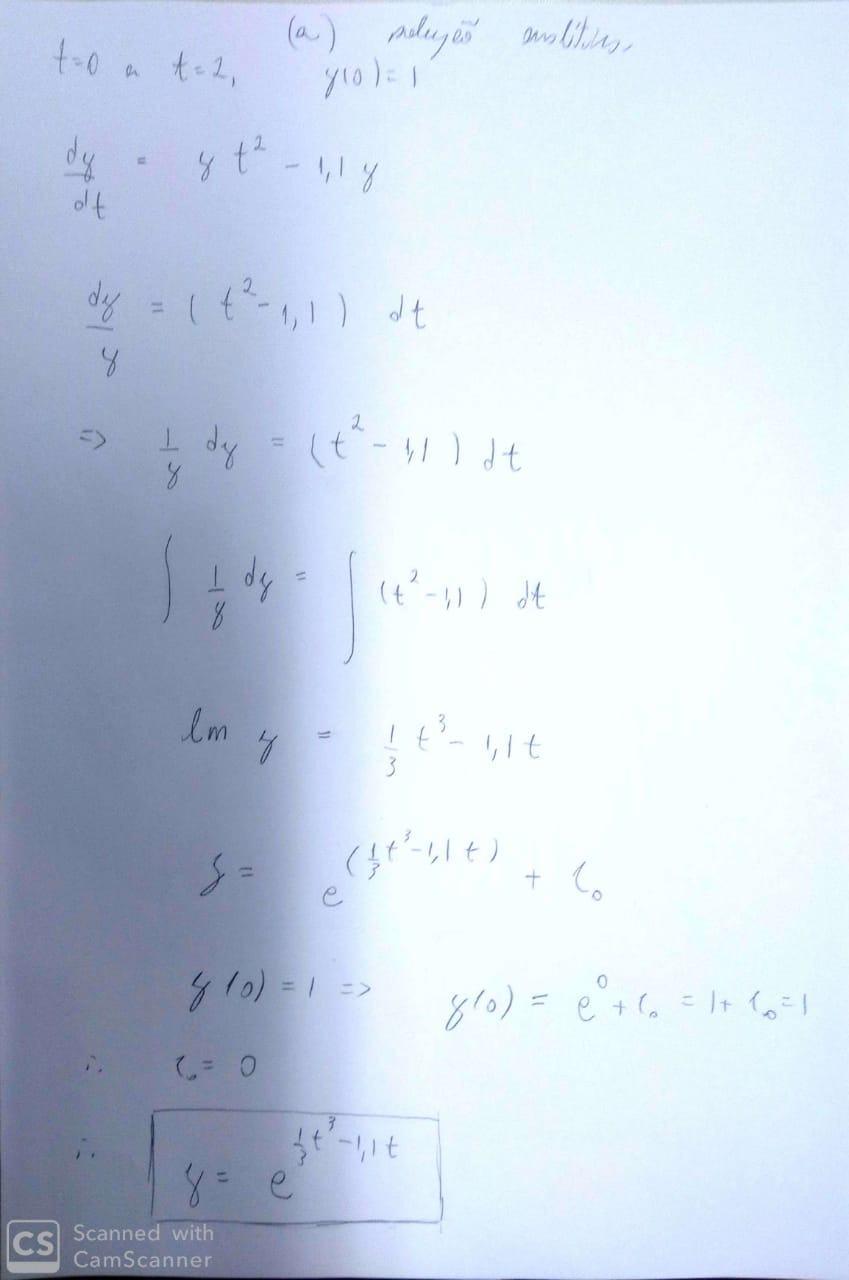 (a) solução analítica
t=0 a t=2, y(0)=1
dy/dt = y t² - 1,1 y
dy/y = (t² - 1,1) dt
=> 1/y dy = (t² - 1,1) dt
∫ 1/y dy = ∫ (t² - 1,1) dt
ln y = 1/3 t³ - 1,1 t
y = e^(1/3 t³ - 1,1 t) + C₀
y(0) = 1 => y(0) = e⁰ + C₀ = 1 + C₀ = 1
∴ C₀ = 0
∴ y = e^(1/3 t³ - 1,1 t)
CS Scanned with
CamScanner